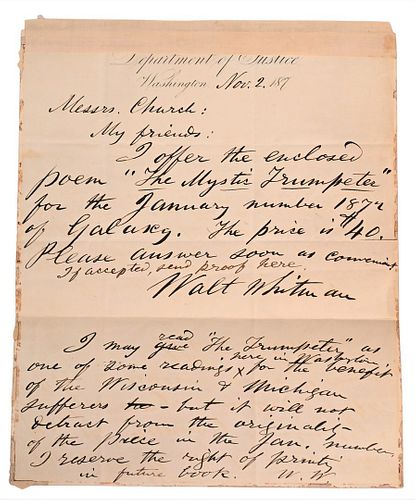 Department of Justice
Washington Nov. 2. 187
Messrs. Church:
My friends:
I offer the enclosed
poem "The Mystic Trumpeter"
for the January number 1872
of Galaxy. The price is $40.
Please answer soon as convenient
If accepted, send proof here.
Walt Whitman
I may read "The Trumpeter" as
one of some readings here in Washington for the benefit
of the Wisconsin & Michigan
sufferers – but it will not
detract from the originality
of the piece in the Jan. number.
I reserve the right of printing
in future book. W. W.